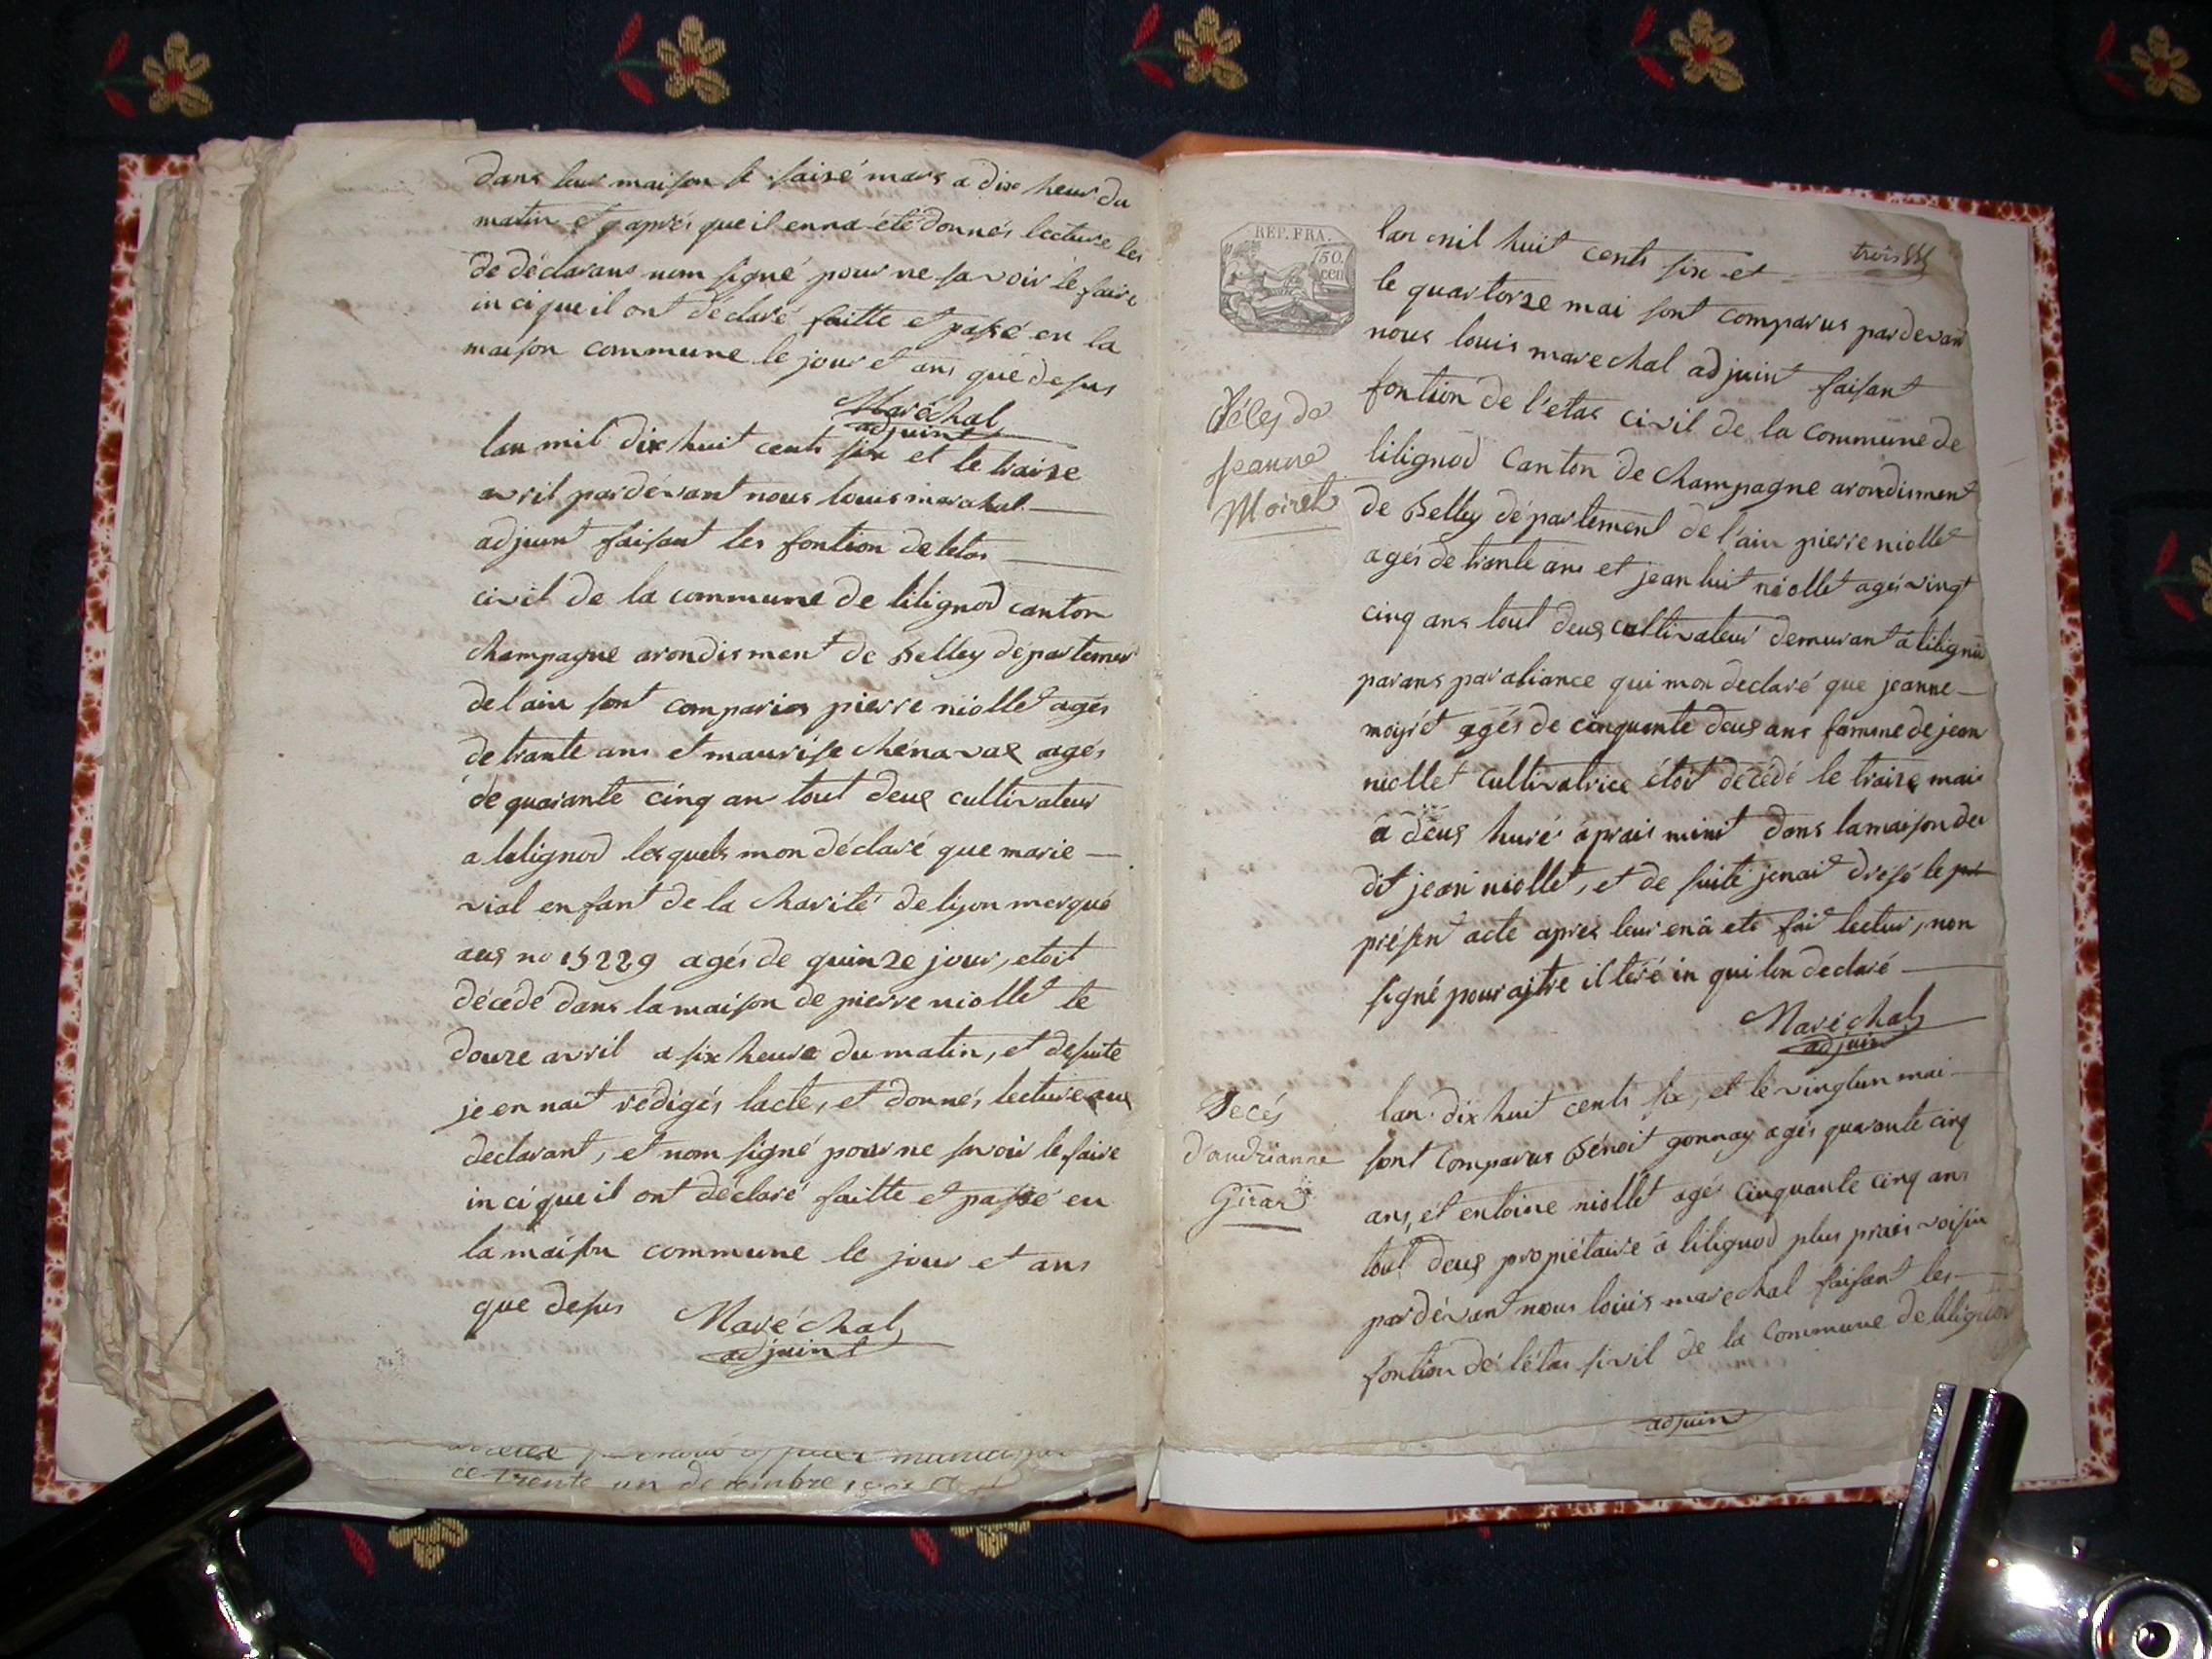 dans leur maison le saisé mars a dix heur du
matin et après que il enna été donnés lecture les
de déclarans nom signé pour ne savoir le faire
in ci que il ont déclaré faitte et passé en la
maison commune le jour et ans que desus
Maréchal
adjuint
lan mil dix huit cents six et le traize
avril pardévant nous louis marchal
adjuint faisant les fontion de letas
civil de la commune de lilignod canton
champagne arondisment de Belley departement
de lain sont comparus pierre niollet agés
de trante ans et maurise chénavas agés
de quarante cinq an tout deux cultivateur
a lilignod lesquels mon déclaré que marie
vial enfant de la charité de lyon merqué
aus no 15229 agés de quinze jour, etoit
décédé dans la maison de pierre niollet le
douze avril a six heure du matin, et desuite
je en nait rédigés lacte, et donnés lecture aux
declarant, et nom signé pour ne savoir le faire
in ci que il ont déclaré faitte et passé en
la maison commune le jour et ans
que desus Maréchal
adjuint
officier municipal
ce trente un de cembre
REP. FRA.
50.
cen
trois
lan mil huit cents six et
le quartorze mai sont comparus pardevant
nous louis marechal adjuint faisant
fontion de l'etas civil de la commune de
lilignod canton de champagne arondisment
de Belley département de l'ain pierre niollet
agés de trante ans et jean luit niollet agés vingt
cinq ans tout deux cultivateur demurant á lilignod
parans par aliance qui mon declaré que jeanne
moiret agés de cinquante deux ans famme de jean
niollet cultivatrice étoit décédé le traize mai
a deux huré aprais minit dans la maison du
dit jean niollet, et de suite jenait dresé le
présent acte après leur ena eté fait lectur, non
signé pour aitre il teré in qui lon declaré
Maréchal
adjuin
Décès de
jeanne
Moiret
Decés
d'audrianne
Girar
lan dix huit cents six, et le vingtun mai
sont comparus Bénoit gonnay agés quarante cinq
ans, et entoine niollet agés cinquante cinq ans
tout deux propiétaire à lilignod plus prais voisin
pardévant nous louis marechal faisant les
fontion de létas sivil de la commune de lilignod
adjuin